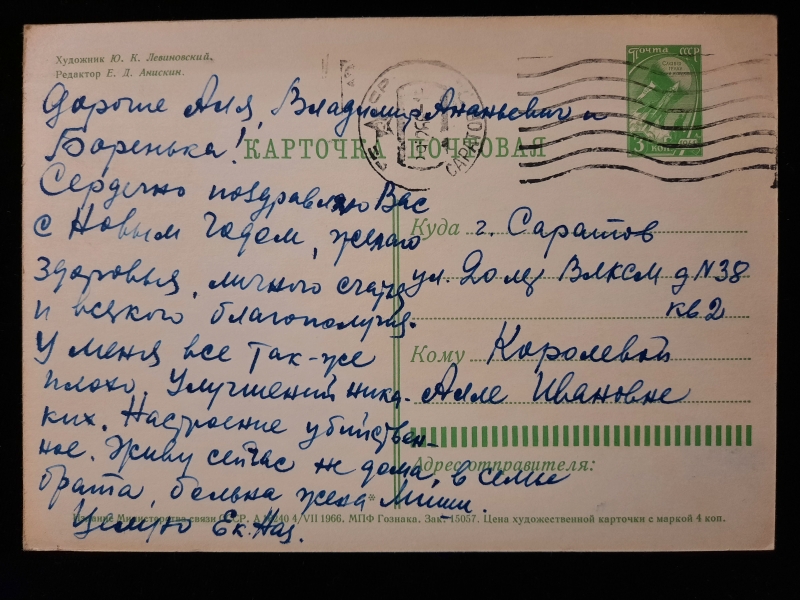 Художник Ю. К. Левановский,
Редактор Е. Д. Анискин.
КАРТОЧКА ПОЧТОВАЯ
Почта СССР
3 коп.
САРАТОВ
Дорогие Аля, Владимир Ананьевич и
Боренька!
Сердечно поздравляю Вас
с Новым годом, желаю
здоровья, личного счастья
и всякого благополучия.
У меня все так-же
плохо. Улучшений ника-
ких. Настроение убийствен-
ное. Живу сейчас не дома, в семье
брата, больна жена Миши.
Целую Ек. Наз.
Куда г. Саратов
ул. 20 лет ВЛКСМ д N 38
кв 2
Кому Королевой
Алле Ивановне
Адрес отправителя:
Издание Министерства связи СССР. 4/VII 1966. МПФ Гознака. Зак. 15057. Цена художественной карточки с маркой 4 коп.